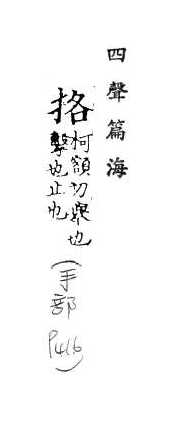 四聲篇海
挌
柯額切舉也
擊也止也
(手部
P416)